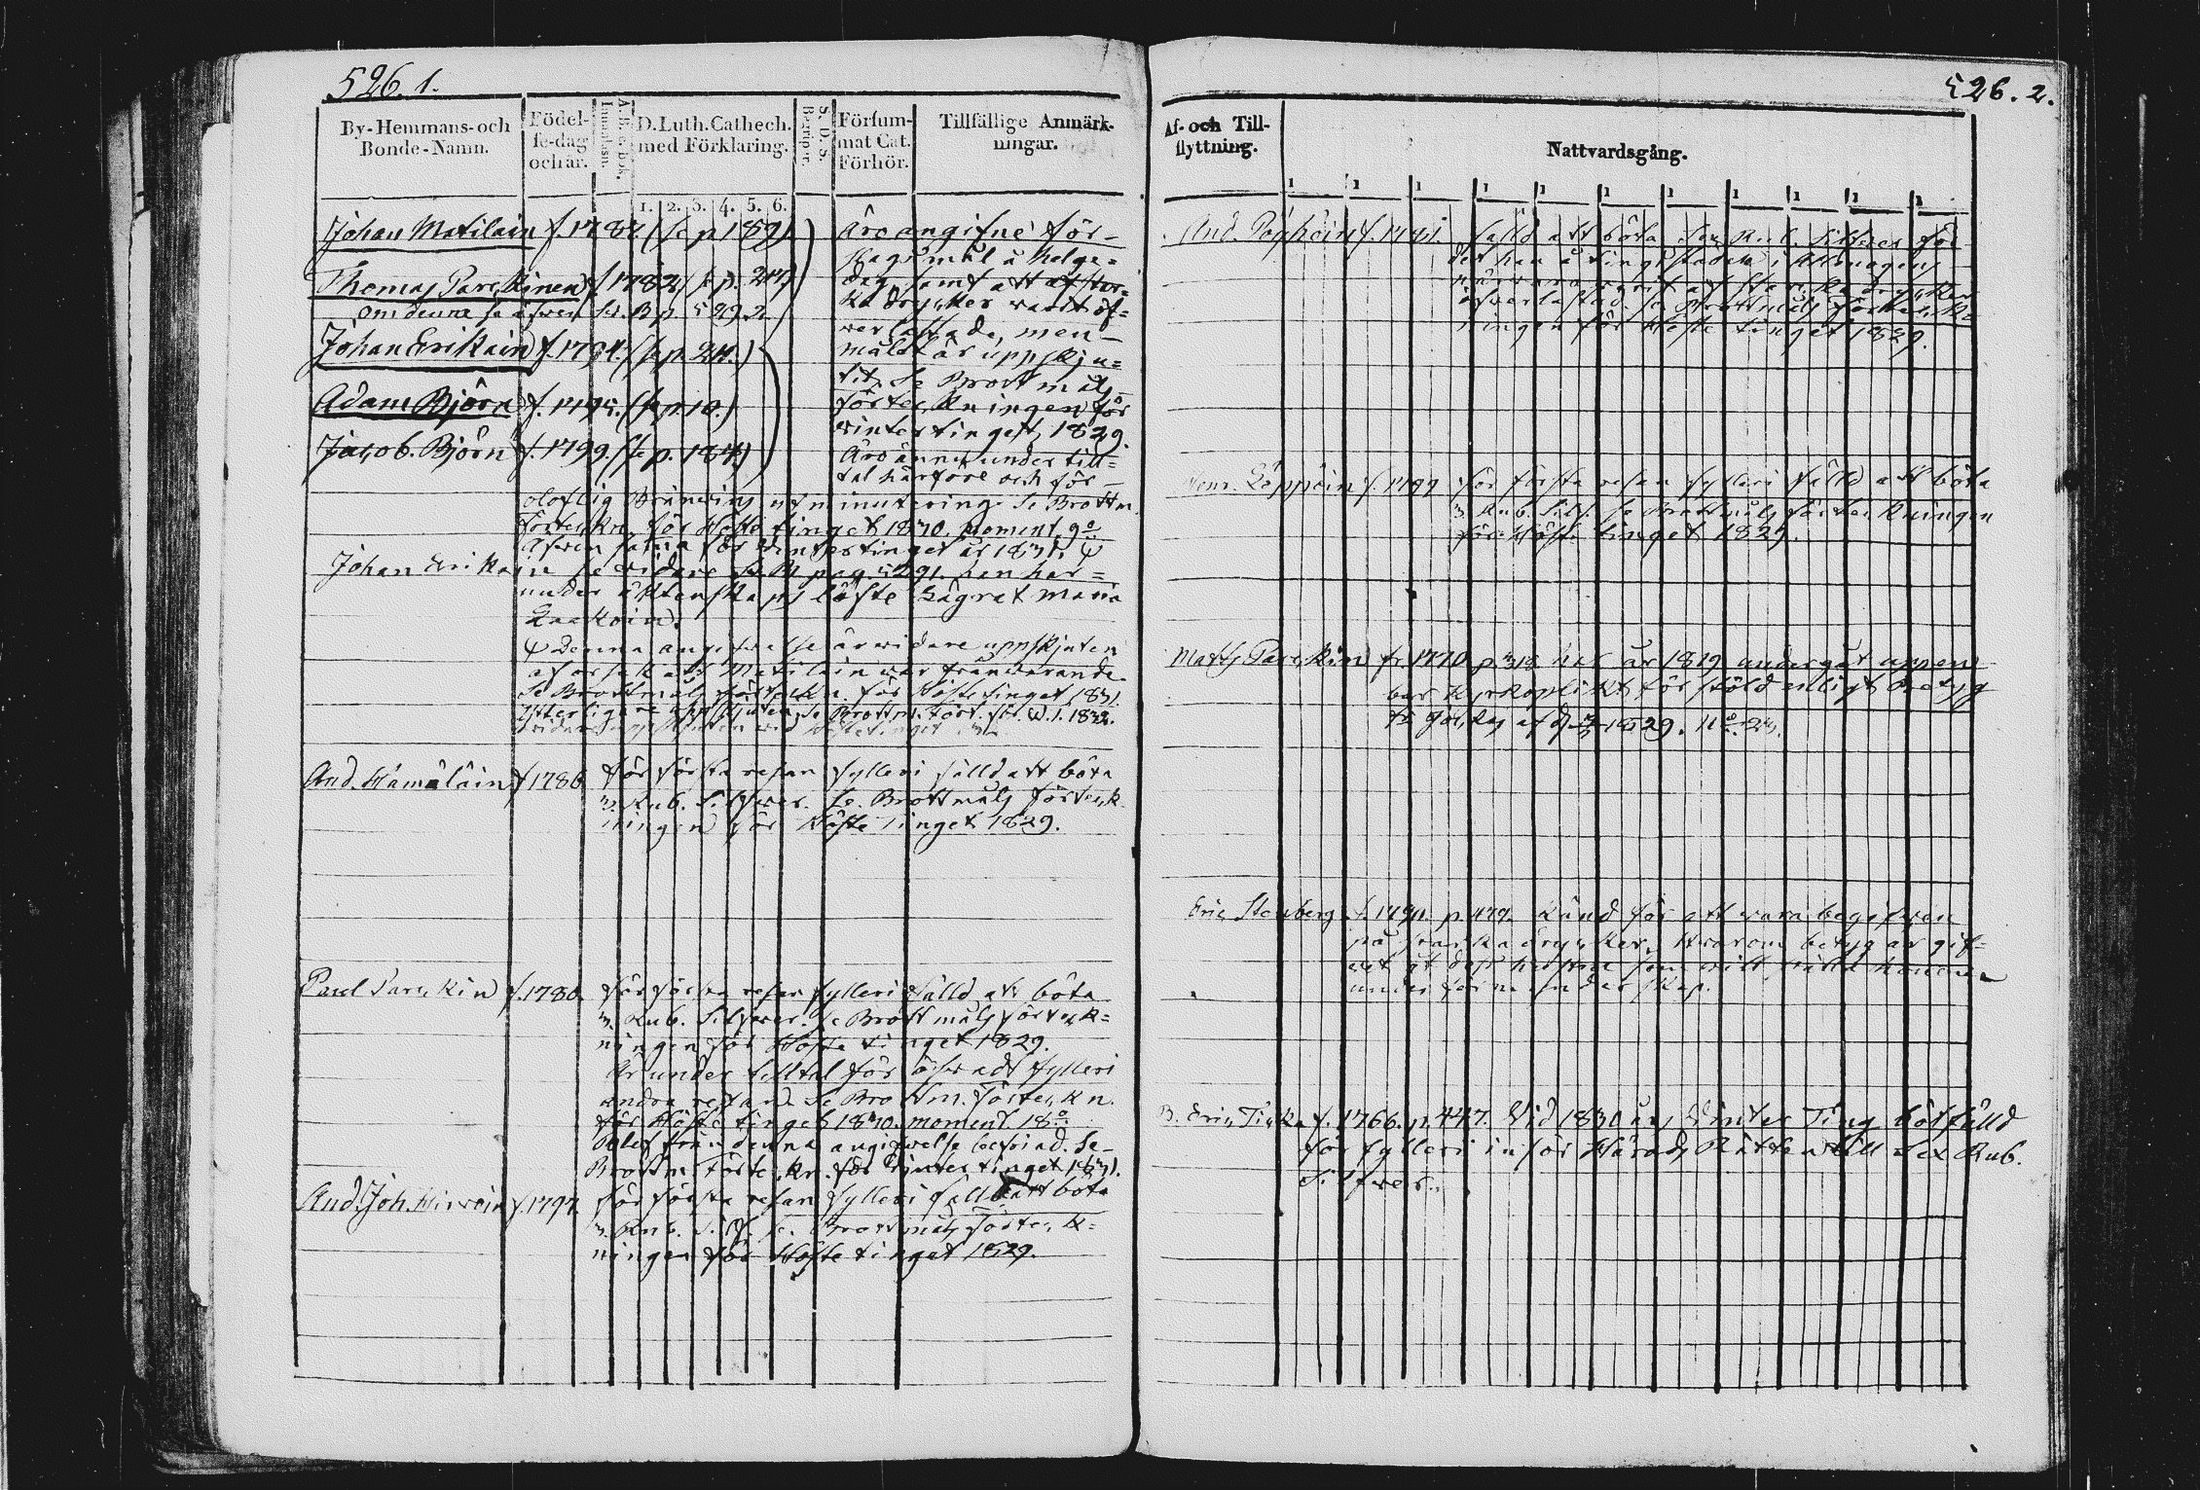 526. 1.
By-Hemmans-och Bonde-Namn.
Födel-se-dag och år.
A. B. c. bok. Innanläsn.
D. Luth. Cathech. med Förklaring.
S. D. S. Begripr.
Försum-mat Cat. Förhör.
Tillfällige Anmärk-ningar.
1. 2. 3. 4. 5. 6.
Johan Matilain f. 1784. (se p. 189)
Thomas Parckinen f. 1782 (se p. 217)
om denne se äfven
Johan Erikain f. 1794. (se p. 24.)
Adam Björn f. 1795. (se p. 10.)
Jacob. Björn f. 1799. (se p. 184)
Äro angifne för
slagsmål å helge=
dag, samt att af star-
ka drycker varit öf=
verlastade, men
målet är uppskju=
tit, Se Brottmåls
förteckningen för
vintertinget 1829.
Äro ännu under till=
tal härföre och för
oloflig Bränvins utminutering Se Brottm.
förteckn. för Höste tinget 1830. moment 9o
Äfven samma för Vintertinget år 1831. Ψ
Johan Erikain se vidare pag 5291. han har
under äktenskaps löfte lägrat Maria
Ψ Denna angifvelse är vidare uppskjuten
af orsak att Matilain var frånvarande
Se Brottmåls förteckn. för Höstetinget 1831.
Ytterligare uppskjuten, Se Brottm. fört. för W. T. 1832.
And. Hämäläin f 1786
för första resan fylleri fälld att böta
3. Rub. Silfver. Se. Brottmåls förteck
ningen för Höste Tinget 1829.
Paul Parckin f. 1780.
för första resan fylleri fälld att böta
3. Rub. Silfver. Se Brottmåls förteck=
ningen för Höste tinget 1829.
Är under tilltal för öfvadt fylleri
andra resan. Se Brottm. förteckn.
för Höste tinget 1830. moment. 18o
Blef från denna angifvelse befriad. Se
Brottm. förteckn. för Vinter tinget 1831.
And. Joh. Hirvoin f. 1797.
för första resan fylleri fälld att böta
3. Rub. Silf. Se. Brottmåls förteck=
ningen för Höste tinget 1829.
526. 2.
Af- och Till-flyttning.
Nattvardsgång.
1 1 1 1 1 1 1 1 1 1 1
And.
fälld att böta Sex Rub. Silfver för
det han å Tingsstaden i Allmogens
närvaro varit af starka drycker
öfverlastad. Se Brottmåls förteck
ningen för Höste tinget 1829.
Henr. Löppöin f. 1799
för första resan fylleri fälld att böta
3 Rub. Silf. Se Brottmåls förteckningen
för Höste tinget 1829.
Matts Parckin f. 1770 p. 318 har år 1819 undergåt uppen
bar Kyrkoplikt för stöld enligt Betyg
Eric Stenberg p. 479. Känd för att vara begifven
på starka drycker, Hvarom betyg är gif=
vet åt
B. Eric Ticka f. 1766. p. 447. Vid 1830 års Vinter Ting bötfälld
för fylleri inför Härads Rätten till Sex Rub.
Silfver.